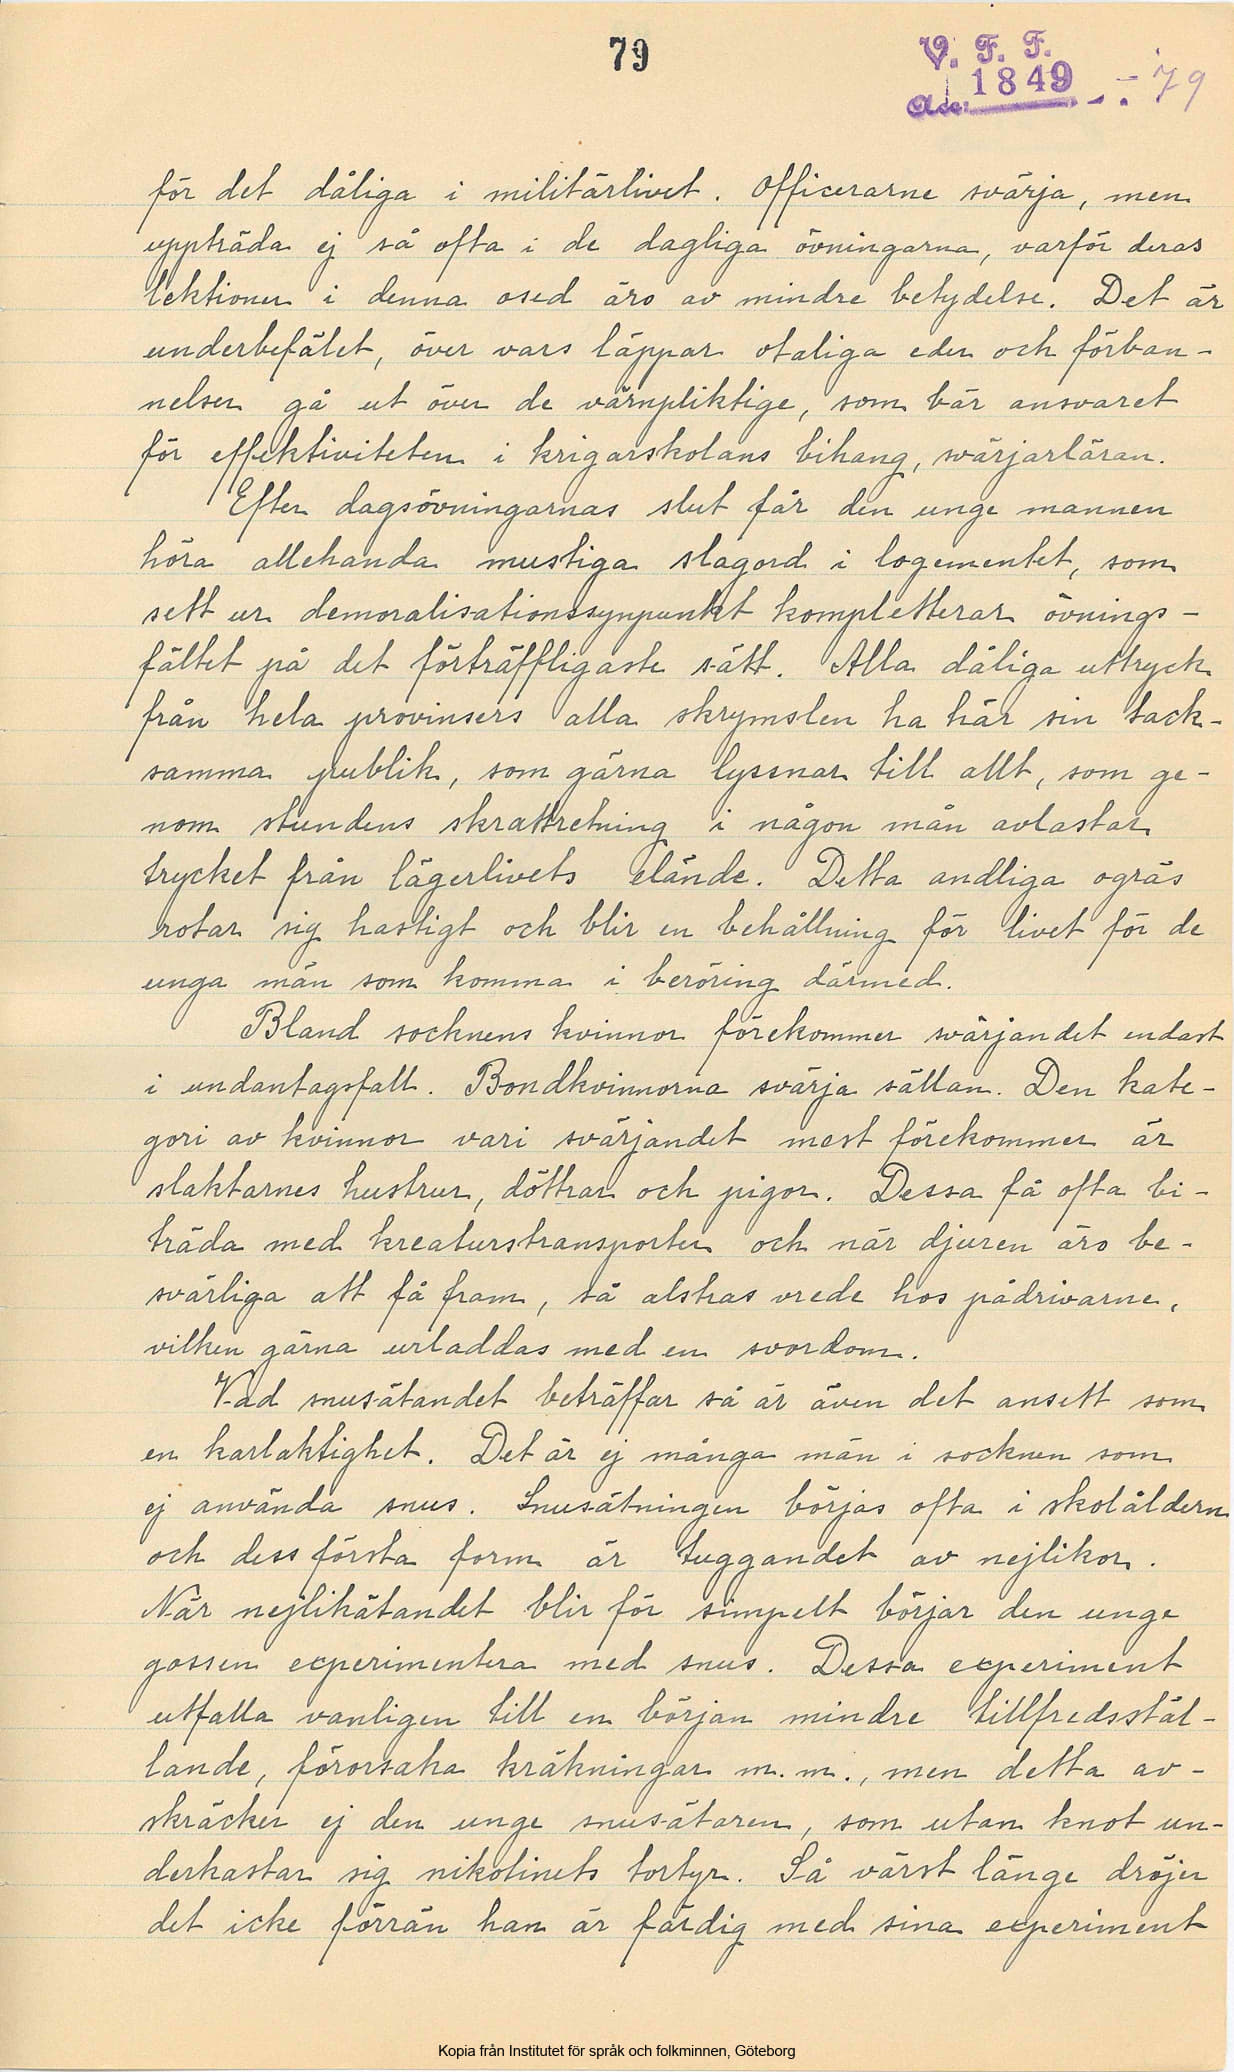 79
V. F. F.
1849
Acc. - : 79
för det dåliga i militärlivet. Officerarne svärja, men
uppträda ej så ofta i de dagliga övningarna, varför deras
lektioner i denna osed äro av mindre betydelse. Det är
underbefälet, över vars läppar otaliga eder och förban-
nelser gå ut över de värnpliktige, som bär ansvaret
för effektiviteten i krigarskolans bihang, svärjarläran.
Efter dagsövningarnas slut får den unge mannen
höra allehanda mustiga slagord i logementet, som
sett ur demoralisationssynpunkt kompletterar övnings-
fältet på det förträffligaste sätt. Alla dåliga uttryck
från hela provinsers alla skrymslen ha här sin tack-
samma publik, som gärna lyssnar till allt, som ge-
nom stundens skrattretning i någon mån avlastar
trycket från lägerlivets elände. Detta andliga ogräs
rotar sig hastigt och blir en behållning för livet för de
unga män som komma i beröring därmed.
Bland socknens kvinnor förekommer svärjandet endast
i undantagsfall. Bondkvinnorna svärja sällan. Den kate-
gori av kvinnor vari svärjandet mest förekommer är
slaktarnes hustrur, döttrar och pigor. Dessa få ofta bi-
träda med kreaturstransporter och när djuren äro be-
svärliga att få fram, så alstras vrede hos pådrivarne,
vilken gärna urladdas med en svordom.
Vad snusätandet beträffar så är även det ansett som
en karlaktighet. Det är ej många män i socknen som
ej använda snus. Snusätningen börjas ofta i skolåldern
och dess första form är tuggandet av nejlikor.
När nejlikätandet blir för simpelt börjar den unge
gossen experimentera med snus. Dessa experiment
utfalla vanligen till en början mindre tillfredsstäl-
lande, förorsaka kräkningar m. m., men detta av-
skräcker ej den unge snusätaren, som utan knot un-
derkastar sig nikotinets tortyr. Så värst länge dröjer
det icke förrän han är färdig med sina experiment
Kopia från Institutet för språk och folkminnen, Göteborg